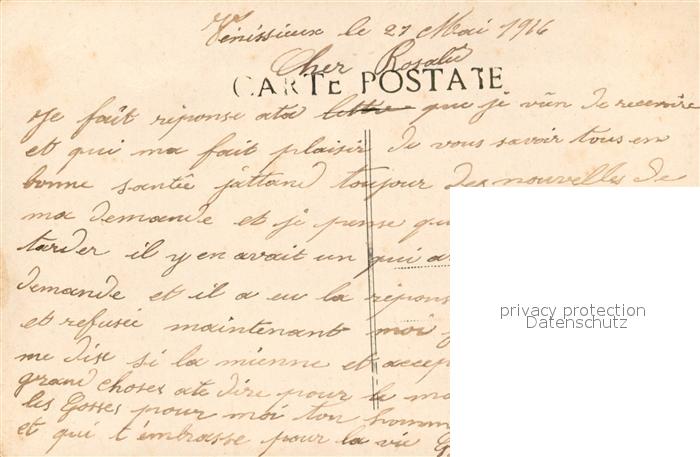 Vénissieux le 27 Mai 1916
Cher Rosalie
CARTE POSTALE
Je fait réponse ata lettre que je vien de recevoire
et qui ma fait plaisir de vous savoir tous en
bonne santée jattand toujour des nouvelles de
ma demande et je pense qu
tarder il y en avait un qui a
demande et il a eu la répons
et refusée maintenant moi j
me dise si la mienne et accep
grand choses ate dire pour le mo
les Gosses pour moi ton homm
et qui t'embrasse pour la vie G
privacy protection
Datenschutz